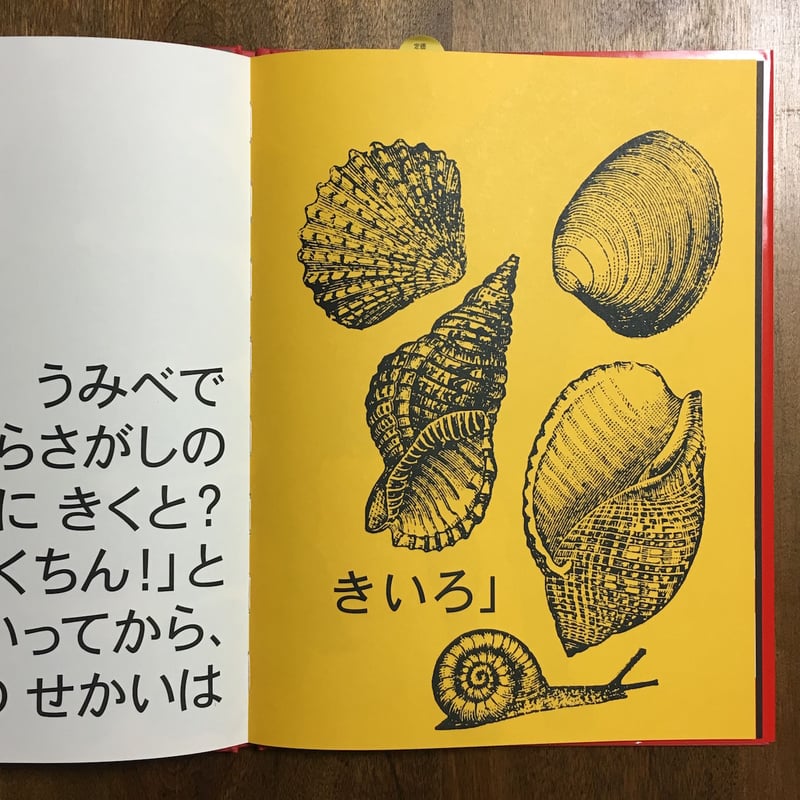 うみべで
らさがしの
に きくと?
くちん!」と
いってから、
せかいは
きいろ」
定価